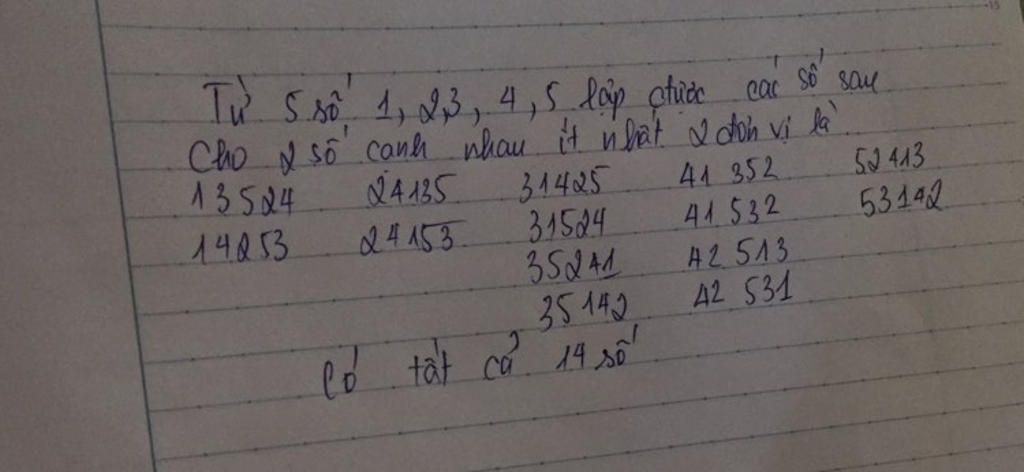 Từ 5 số 1, 2, 3, 4, 5 lập được các số sau
Cho 2 số cạnh nhau ít nhất 2 đơn vị là
13524 24135 31425 41 352 52413
14253 24153 31524 41 532 53142
35241 42 513
35142 42 531
Có tất cả 14 số